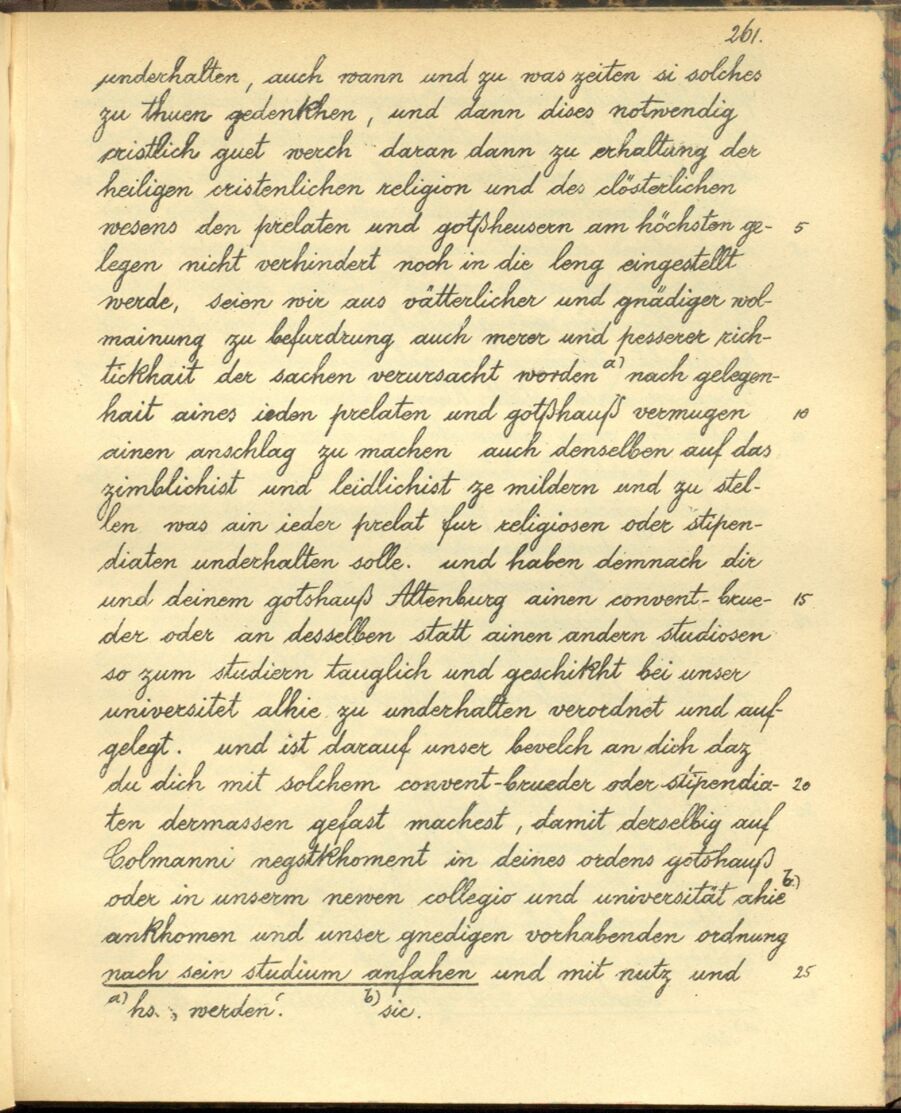 261.
underhalten, auch wann und zu was zeiten si solches
zu thuen gedenkhen, und dann dises notwendig
cristlich guet werch daran dann zu erhaltung der
heiligen cristenlichen religion und des clösterlichen
wesens den prelaten und gotßheusern am höchsten ge- 5
legen nicht verhindert noch in die leng eingestellt
werde, seien wir aus vätterlicher und gnädiger wol-
mainung zu befurdrung auch merer und pesserer rich-
tickhait der sachen verursacht worden a) nach gelegen-
hait aines ieden prelaten und gotßhauß vermugen 10
ainen anschlag zu machen auch denselben auf das
zimblichist und leidlichist ze mildern und zu stel-
len was ain ieder prelat fur religiosen oder stipen-
diaten underhalten solle. und haben demnach dir
und deinem gotshauß Altenburg ainen convent-brue- 15
der oder an desselben statt ainen andern studiosen
so zum studiern tauglich und geschikht bei unser
universitet alhie zu underhalten verordnet und auf-
gelegt. und ist darauf unser bevelch an dich daz
du dich mit solchem convent-brueder oder stipendia- 20
ten dermassen gefast machest, damit derselbig auf
Colmanni negstkhoment in deines ordens gotshauß
oder in unserm newen collegio und universität ahie b)
ankhomen und unser gnedigen vorhabenden ordnung
nach sein studium anfahen und mit nutz und 25
a) hs. „werden“. b) sic.